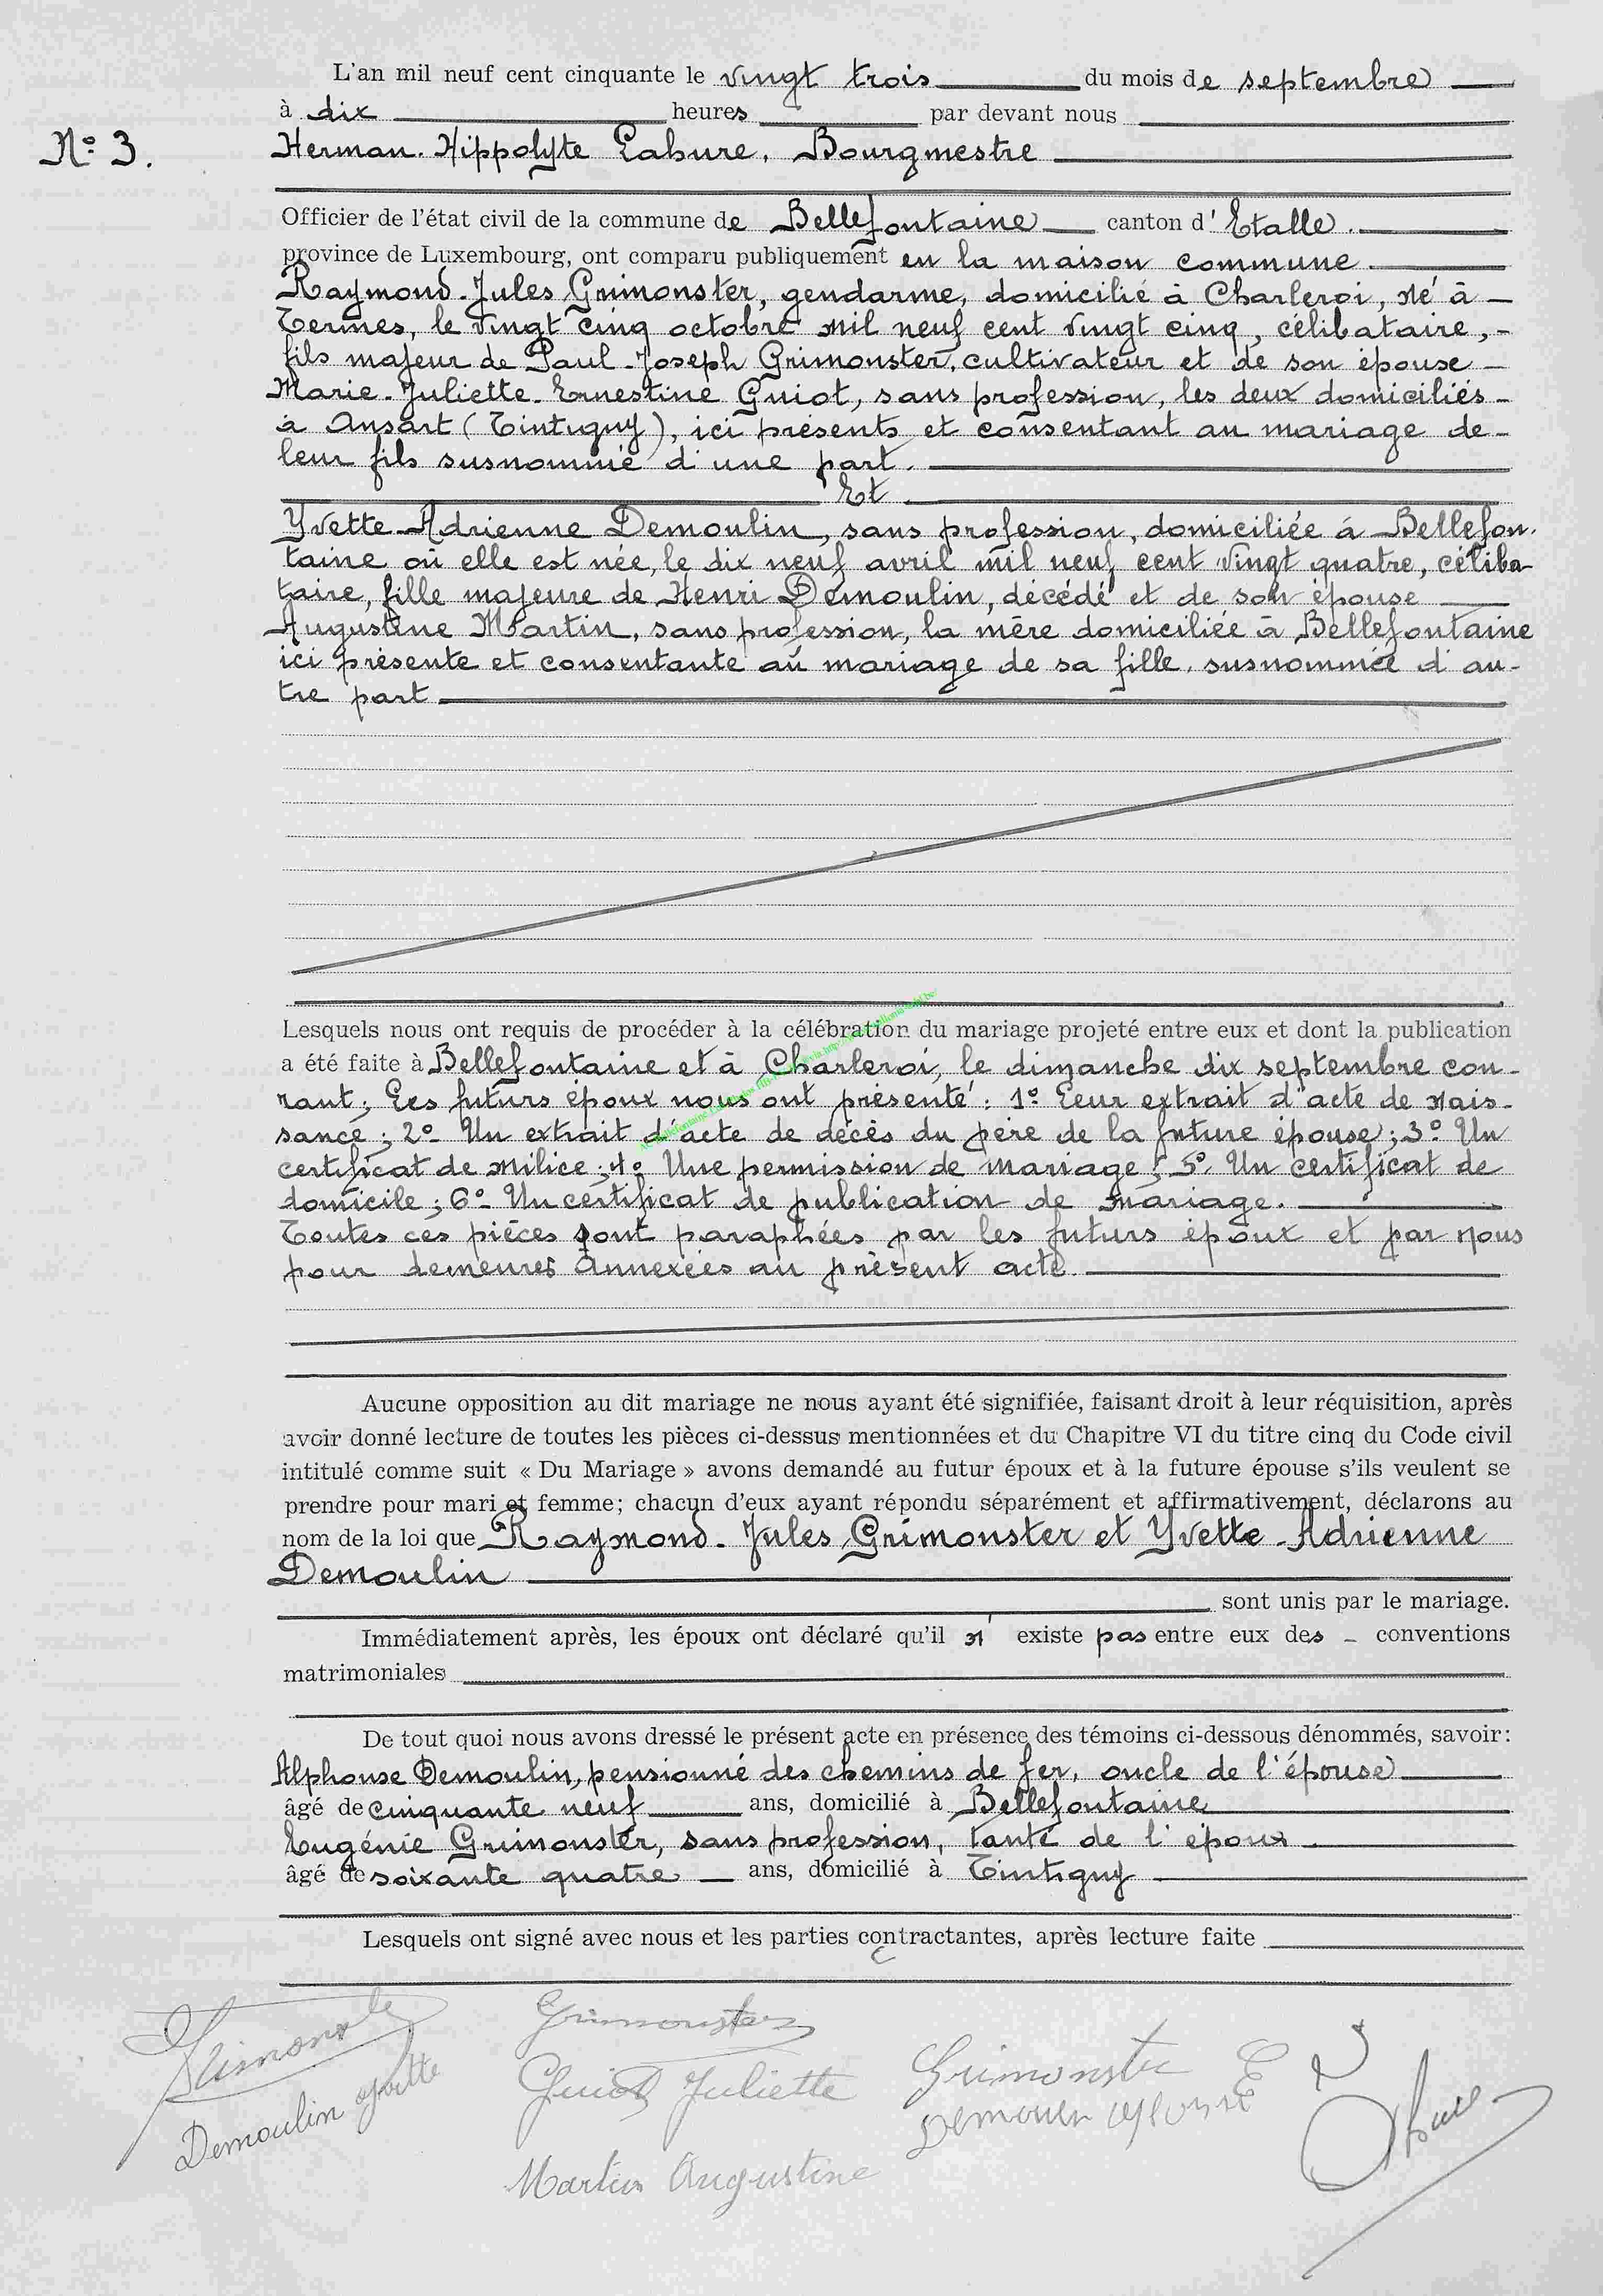 L'an mil neuf cent cinquante le vingt trois du mois de septembre
à dix heures par devant nous
N° 3.
Herman-Hippolyte Lahure, Bourgmestre
Officier de l'état civil de la commune de Bellefontaine canton d'Etalle.
province de Luxembourg, ont comparu publiquement en la maison commune.
Raymond-Jules Grimonster, gendarme, domicilié à Charleroi, né à
Termes, le vingt cinq octobre mil neuf cent vingt cinq, célibataire,
fils majeur de Paul-Joseph Grimonster, cultivateur et de son épouse
Marie-Juliette-Ernestine Guiot, sans profession, les deux domiciliés
à Ansart (Tintigny), ici présents et consentant au mariage de
leur fils susnommé d'une part.
Et
Yvette-Adrienne Demoulin, sans profession, domiciliée à Bellefon-
taine où elle est née, le dix neuf avril mil neuf cent vingt quatre, céliba-
taire, fille majeure de Henri Demoulin, décédé et de son épouse
Augustine Martin, sans profession, la mère domiciliée à Bellefontaine
ici présente et consentante au mariage de sa fille susnommée d'au-
tre part
Lesquels nous ont requis de procéder à la célébration du mariage projeté entre eux et dont la publication
a été faite à Bellefontaine et à Charleroi, le dimanche dix septembre cou-
rant; Les futurs époux nous ont présenté: 1° Leur extrait d'acte de nais-
sance; 2° Un extrait d'acte de décès du père de la future épouse; 3° Un
certificat de milice; 4° Une permission de mariage; 5° Un certificat de
domicile; 6° Un certificat de publication de mariage.
Toutes ces pièces sont paraphées par les futurs époux et par nous
pour demeurer annexées au présent acte.
Aucune opposition au dit mariage ne nous ayant été signifiée, faisant droit à leur réquisition, après
avoir donné lecture de toutes les pièces ci-dessus mentionnées et du Chapitre VI du titre cinq du Code civil
intitulé comme suit « Du Mariage » avons demandé au futur époux et à la future épouse s'ils veulent se
prendre pour mari et femme; chacun d'eux ayant répondu séparément et affirmativement, déclarons au
nom de la loi que Raymond-Jules Grimonster et Yvette-Adrienne
Demoulin
sont unis par le mariage.
Immédiatement après, les époux ont déclaré qu'il n'existe pas entre eux des conventions
matrimoniales
De tout quoi nous avons dressé le présent acte en présence des témoins ci-dessous dénommés, savoir:
Alphonse Demoulin, pensionné des chemins de fer, oncle de l'épouse
âgé de cinquante neuf ans, domicilié à Bellefontaine
Eugénie Grimonster, sans profession, tante de l'époux
âgé de soixante quatre ans, domicilié à Tintigny
Lesquels ont signé avec nous et les parties contractantes, après lecture faite
Grimonster
Guiot Juliette
Grimonster E
Demoulin Yvette
Martin Augustine